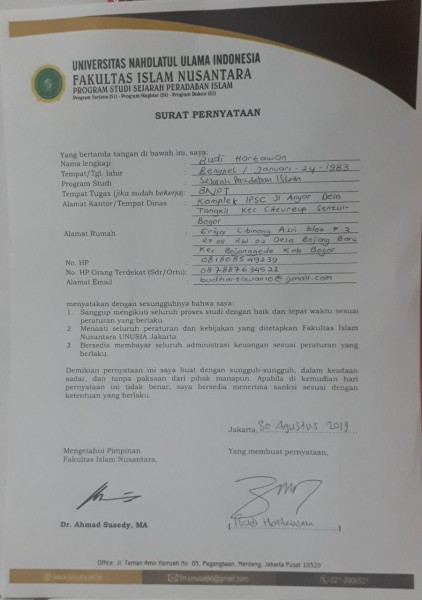 UNIVERSITAS NAHDLATUL ULAMA INDONESIA
FAKULTAS ISLAM NUSANTARA
PROGRAM STUDI SEJARAH PERADABAN ISLAM
Program Sarjana (S1) - Program Magister (S2) - Program Doktor (S3)
SURAT PERNYATAAN
Yang bertanda tangan di bawah ini, saya:
Nama lengkap : Budi Hartawan
Tempat/Tgl. lahir : Bengkel / Januari - 24 - 1983
Program Studi : Sejarah Peradaban Islam
Tempat Tugas (jika sudah bekerja) : BNPT
Alamat Kantor/Tempat Dinas : Komplek IPSC Jl Anyar Desa
Tangkil Kec Citeureup Sentul-
Bogor
Alamat Rumah : Griya Cibinong Asri blok F-2
RT 05 RW 02 Desa Bojong Baru
Kec Bojonggede Kab Bogor
No. HP : 081808549239
No. HP Orang Terdekat (Sdr/Ortu) :
Alamat Email : budihartawan10@gmail.com
menyatakan dengan sesungguhnya bahwa saya:
1. Sanggup mengikuti seluruh proses studi dengan baik dan tepat waktu sesuai
peraturan yang berlaku.
2. Menaati seluruh peraturan dan kebijakan yang ditetapkan Fakultas Islam
Nusantara UNUSIA Jakarta.
3. Bersedia membayar seluruh administrasi keuangan sesuai peraturan yang
berlaku.
Demikian pernyataan ini saya buat dengan sungguh-sungguh, dalam keadaan
sadar, dan tanpa paksaan dari pihak manapun. Apabila di kemudian hari
pernyataan ini tidak benar, saya bersedia menerima sanksi sesuai dengan
ketentuan yang berlaku.
Jakarta, 30 Agustus 2019
Mengetahui Pimpinan
Fakultas Islam Nusantara,
Yang membuat pernyataan,
Dr. Ahmad Suaedy, MA
Budi Hartawan
Office: Jl. Taman Amir Hamzah No. 05, Pegangsaan, Menteng, Jakarta Pusat 10320